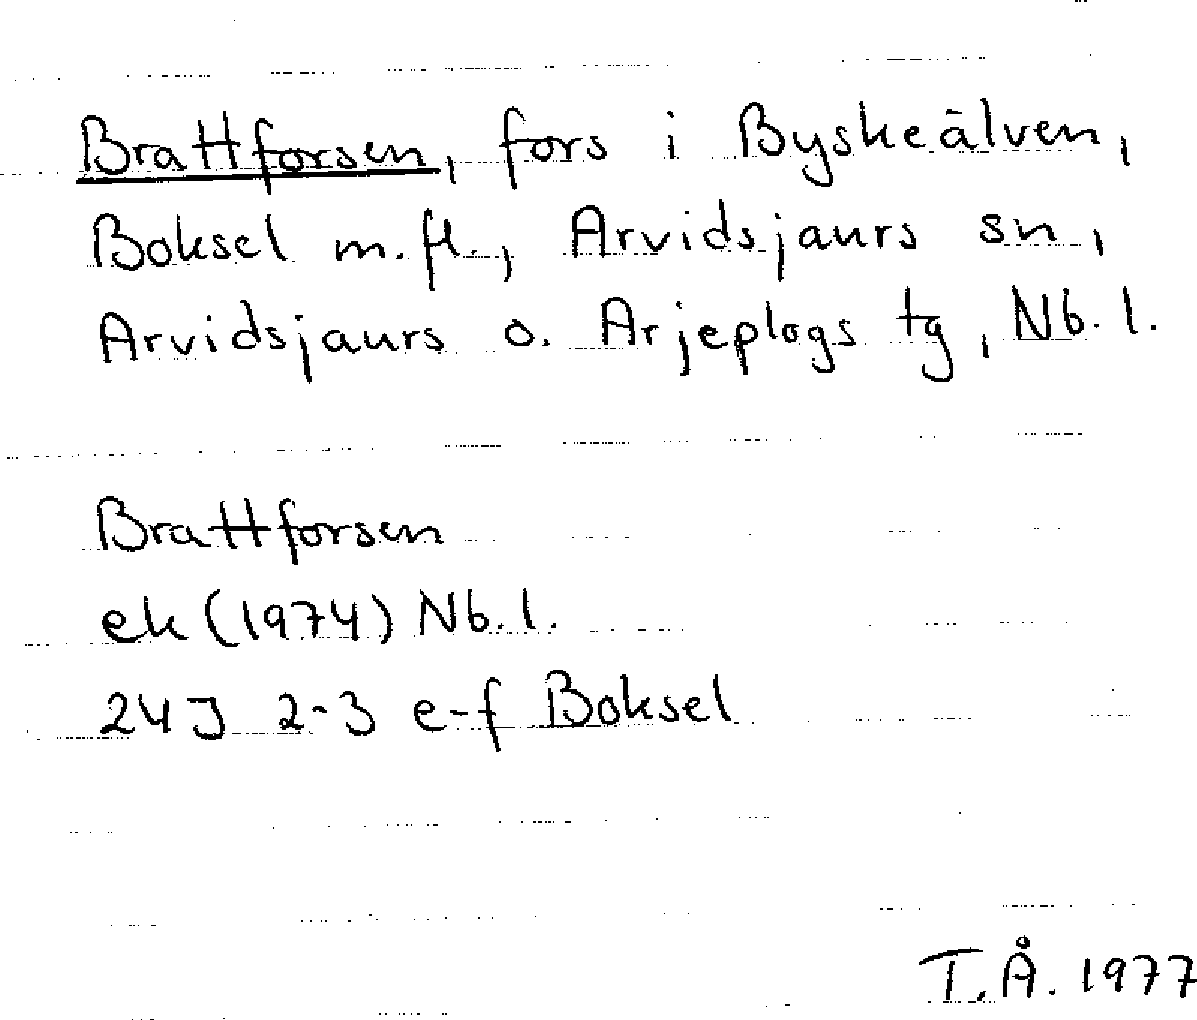 Brattforsen, fors i Byskeälven,
Boksel m.fl., Arvidsjaurs sn,
Arvidsjaurs o. Arjeplogs tg, Nb.l.
Brattforsen
ek (1974) Nb.l.
24J 2-3 e-f Boksel
T.Å. 1977